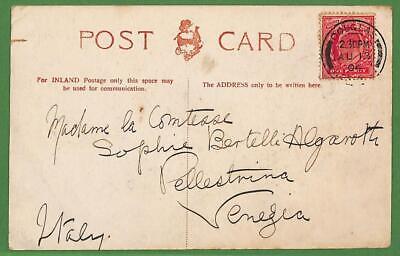 POST CARD
For INLAND Postage only this space may
be used for communication.
The ADDRESS only to be written here.
DOUGLAS
2.30PM
AU 13
04
Madame la Comtesse
Sophie Bertelli Algarotti
Pellestrina
Venezia
Italy.